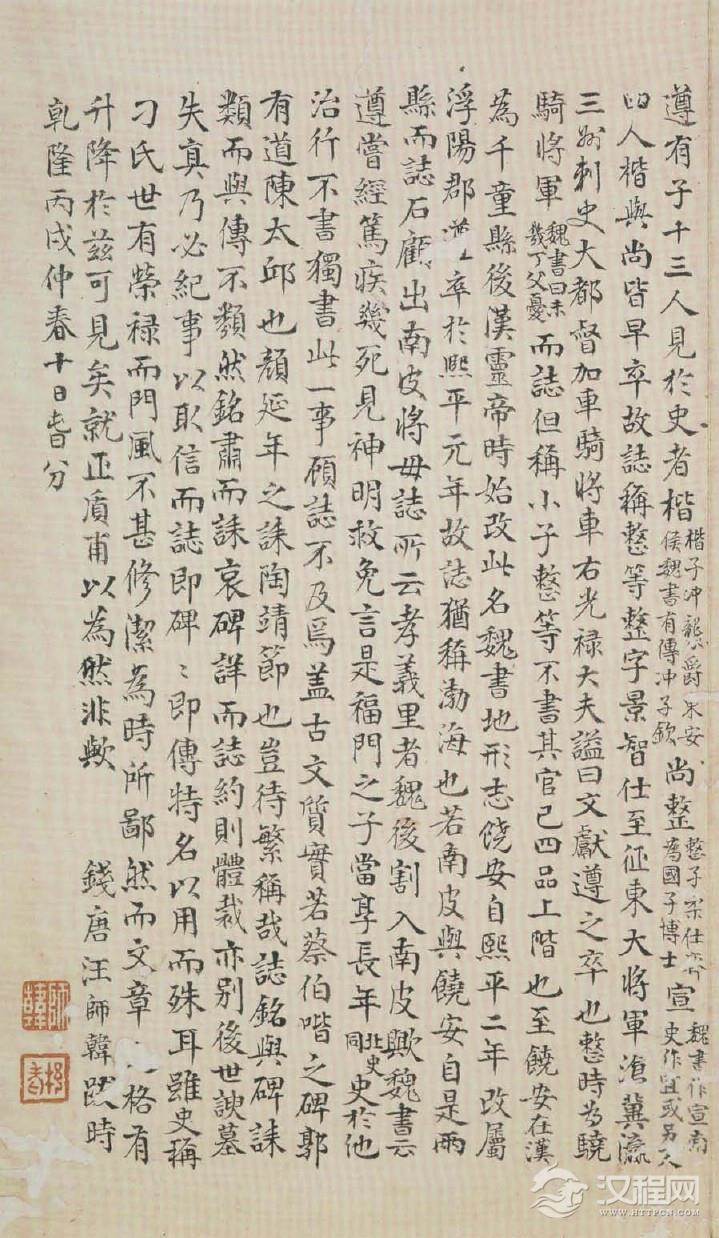 遵有子十三人見於史者楷楷子冲襲爵東安侯魏書有傳冲子欽尚整整子柔仕齊為國子博士宣魏書作宣南史作宜或另一人
四人楷與尚皆早卒故誌稱整等整字景智仕至征東大將軍滄冀瀛
三州刺史大都督加車騎將車右光祿大夫謚曰文獻遵之卒也整時為驍
騎將軍魏書曰未幾丁父憂而誌但稱小子整等不書其官已四品上階也至饒安在漢
為千童縣後漢靈帝時始改此名魏書地形志饒安自熙平二年改屬
浮陽郡遵卒於熙平元年故誌猶稱渤海也若南皮與饒安自是兩
縣而誌石顧出南皮將毋誌所云孝義里者魏後割入南皮歟魏書云
遵嘗經篤疾幾死見神明救免言是福門之子當享長年北史同史於他
治行不書獨書此一事碩誌不及焉盖古文質實若蔡伯喈之碑郭
有道陳太邱也顏延年之誄陶靖節也豈待繁稱哉誌銘與碑誄
類而與傳不類然銘肅而誄哀碑詳而誌約則體裁亦別後世諛墓
失真乃必紀事以取信而誌即碑〻即傳特名以用而殊耳雖史稱
刁氏世有榮禄而門風不甚修潔為時所鄙然而文章格有
升降於兹可見矣就正質甫以為然非歟 錢唐汪師韓跋時
乾隆丙戌仲春十日春分
師韓
汉程网
WWW.HTTPCN.COM